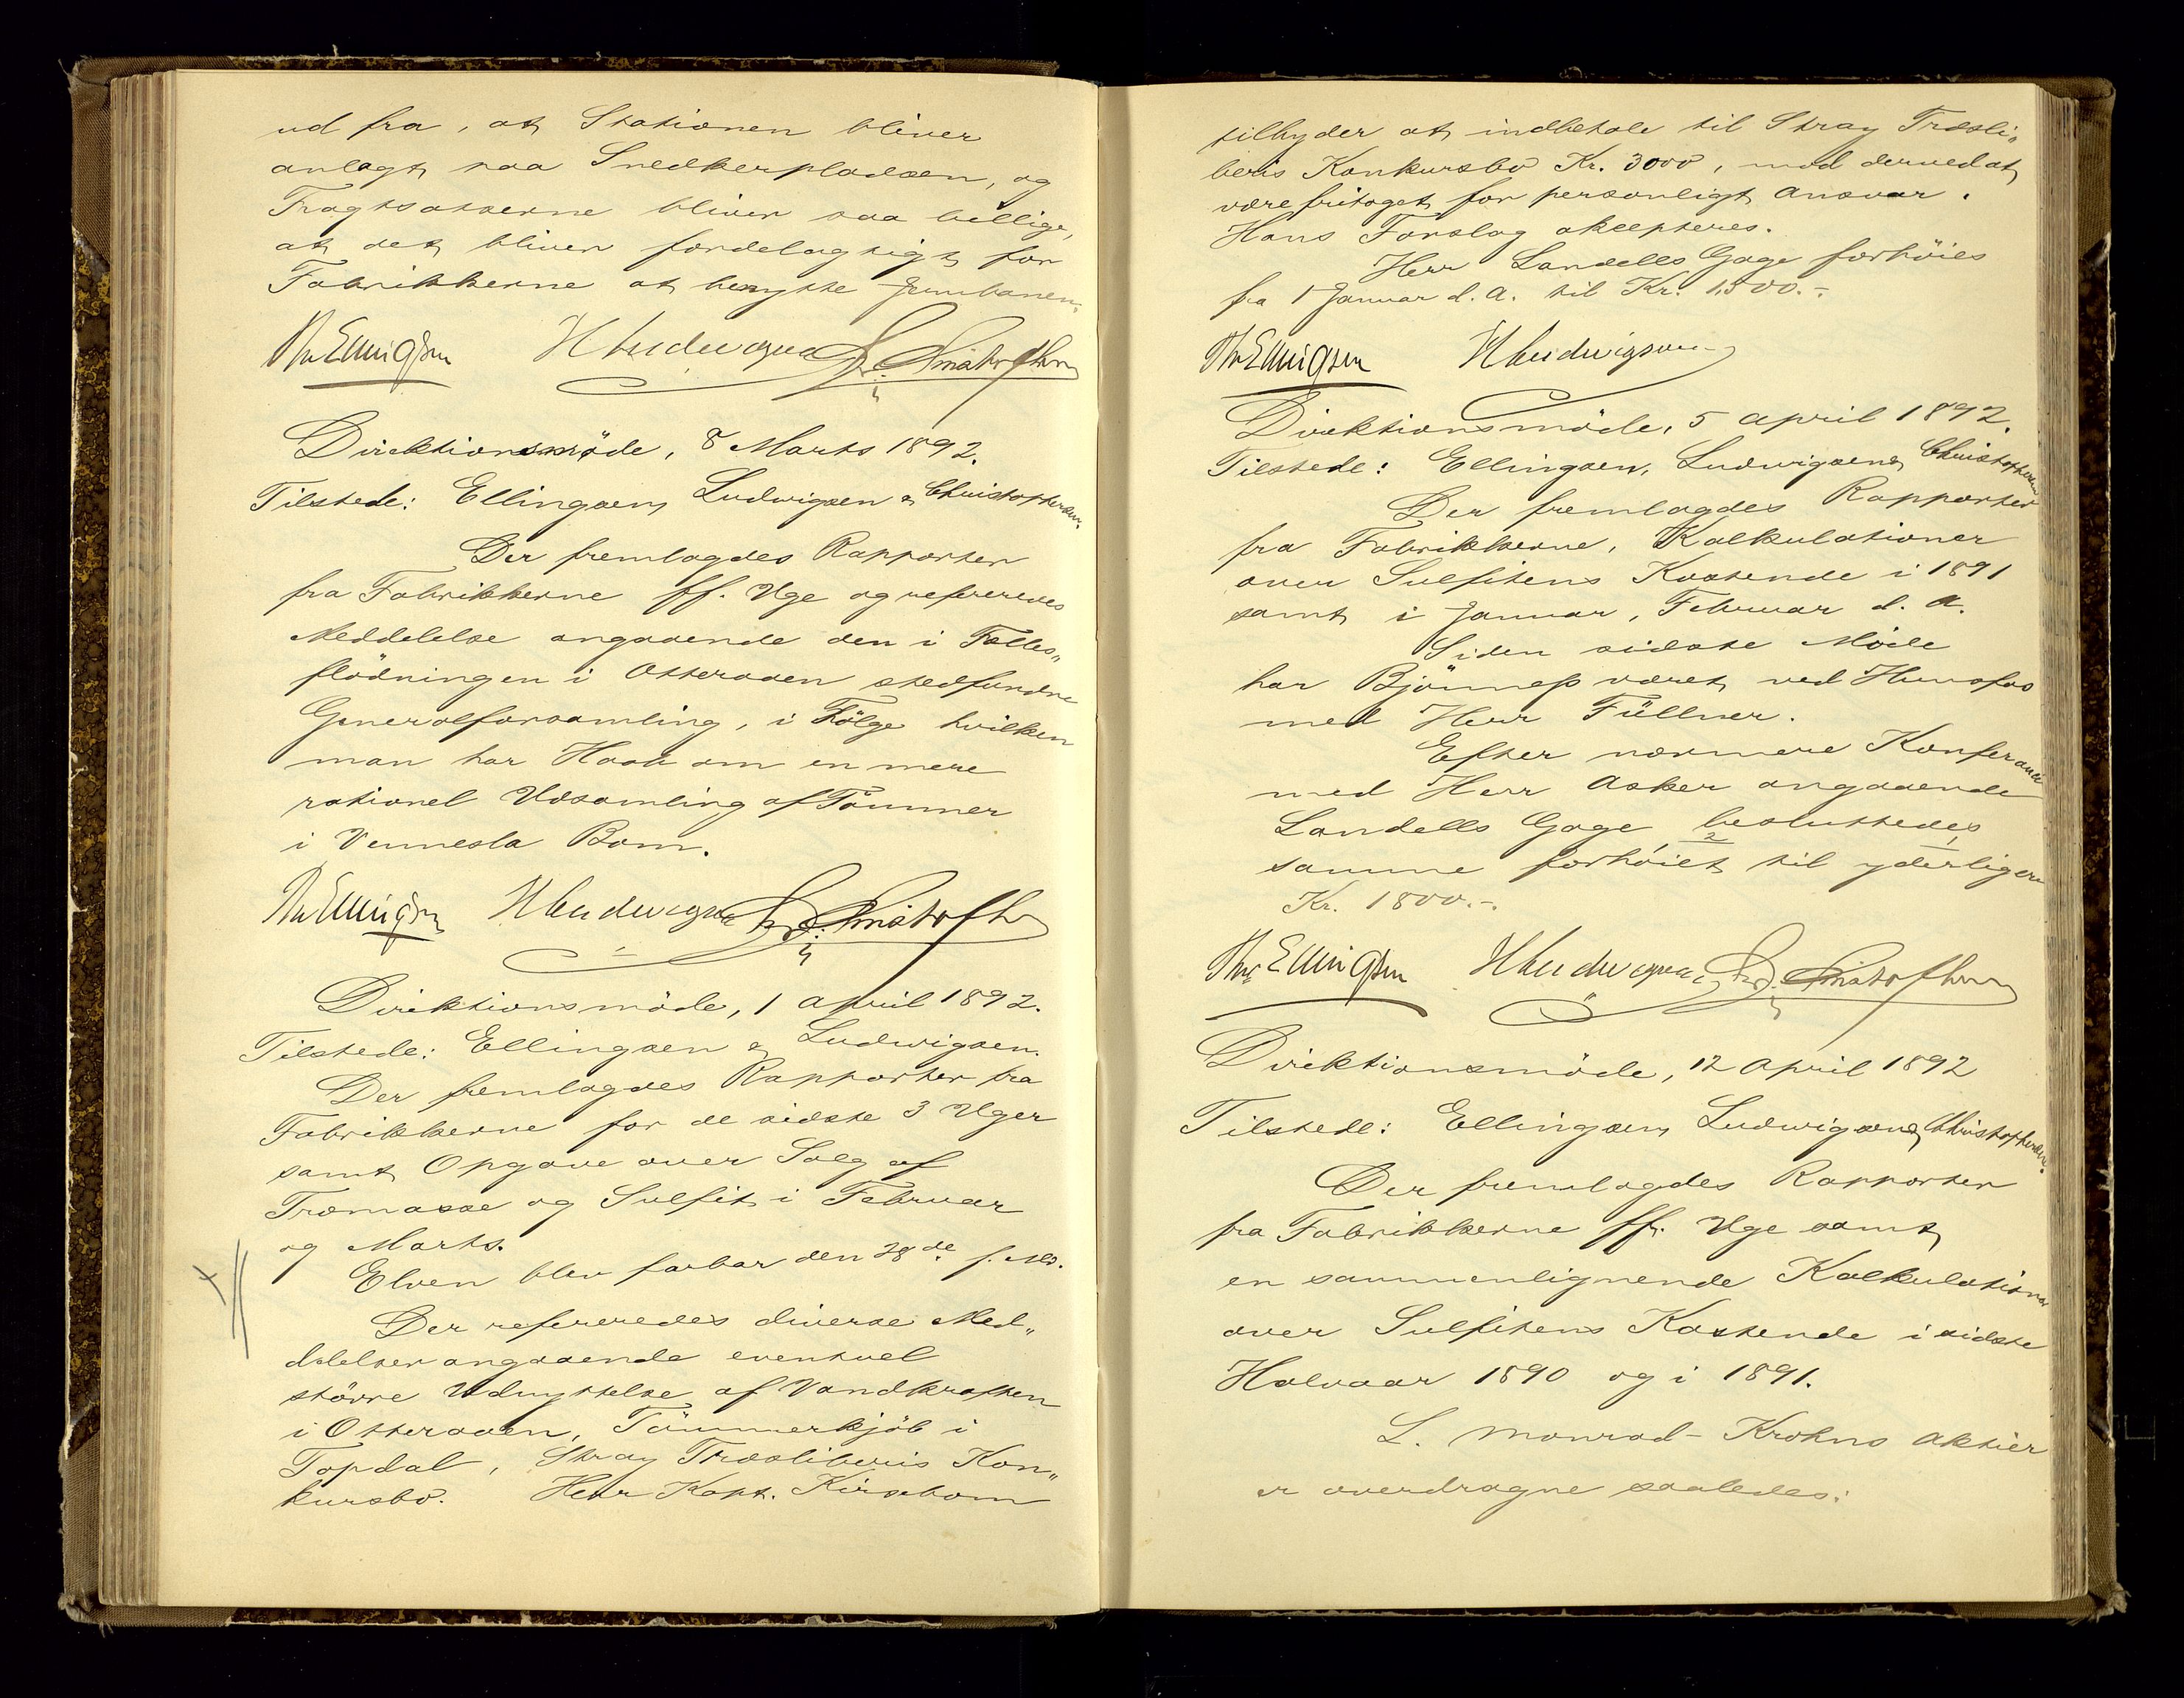 ud fra, at Stationen bliver
anlagt paa Snedkerpladsen, og
Fragtsatserne bliver saa billige,
at det bliver fordelagtigt for
Fabrikkerne at benytte Jernbanen.
Th Ellingsen HLudwigsen Chr. Christophersen
Direktionsmöde, 8 Marts 1892.
Tilstede: Ellingsen, Ludwigsen & Christophersen.
Der fremlagdes Rapporter
fra Fabrikkerne ff. Uge og refereredes
Meddelelse angaaende den i Fælles„
flödningen i Otteraaen stedfundne
Generalforsamling, i Fölge hvilken
man har Haab om en mere
rationel Udsamling af Tömmer
i Vennesla Bom.
Th Ellingsen HLudwigsen Chr. Christophersen
Direktionsmöde, 1 April 1892.
Tilstede: Ellingsen & Ludwigsen.
Der fremlagdes Rapporter fra
Fabrikkerne for de sidste 3 Uger
samt Opgave over Salg af
Træmasse og Sulfit i Februar
og Marts.
Elven blev farbar den 28de f. Md.
Der refereredes diverse Med„
delelser angaaende eventuel
större Udnyttelse af Vandkraften
i Otteraaen, Tömmerkjöb i
Topdal, Stray Træsliberis Kon„
kursbo. Herr Kapt. Kirsebom
tilbyder at indbetale til Stray Træsli„
beris Konkursbo Kr. 3000, mod derved at
være fritaget for personligt Ansvar.
Hans Forslag aksepteres.
Herr Landells Gage forhöies
fra 1 Januar d. A. til Kr. 1500.-
Th Ellingsen HLudwigsen
Direktionsmöde, 5 April 1892.
Tilstede: Ellingsen, Ludwigsen & Christophersen
Der fremlagdes Rapporter
fra Fabrikkerne, Kalkulationer
over Sulfitens Kostende i 1891
samt i Januar, Februar d. A.
Siden sidste Möde
har Bjönness været ved Hunsfos
med Herr Füllner.
Efter nærmere Konferance
med Herr Asker angaaende
Landells Gage, besluttedes
samme forhöiet til yderligere
Kr. 1800.-
Th Ellingsen HLudwigsen Chr. Christophersen
Direktionsmöde, 12 April 1892
Tilstede: Ellingsen, Ludwigsen & Christophersen.
Der fremlagdes Rapporter
fra Fabrikkerne ff. Uge samt
en sammenlignende Kalkulation
over Sulfitens Kostende i sidste
Halvaar 1890 og i 1891.
L. Monrad-Krohns Aktier
er overdragne saaledes: